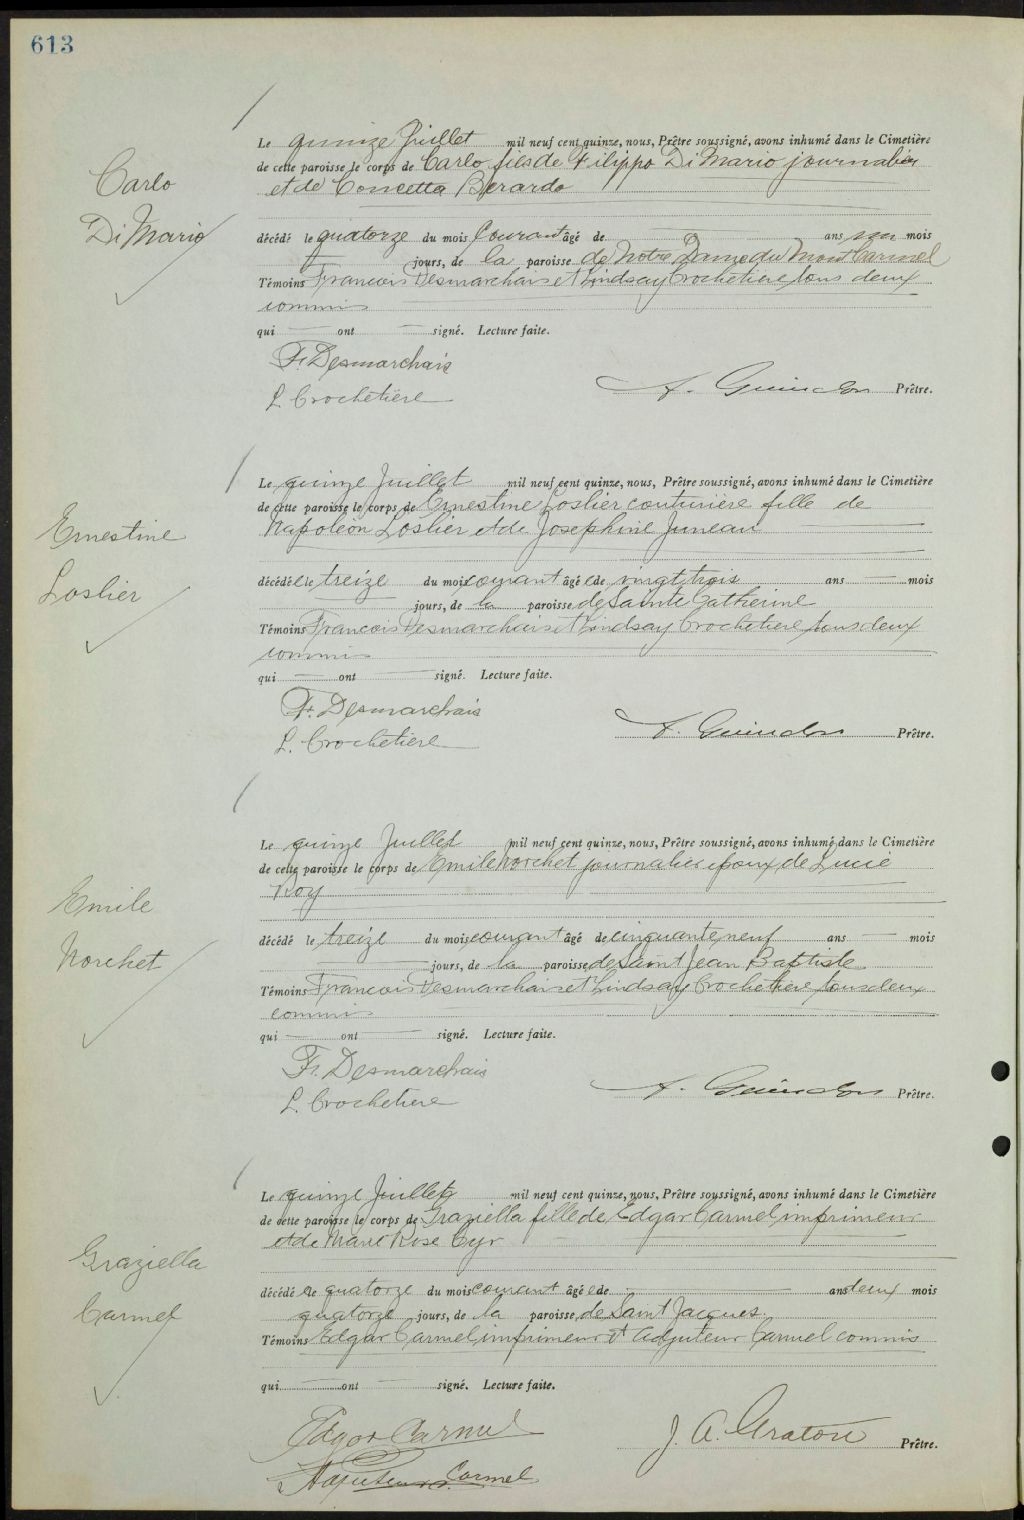 613
Carlo
Di Mario
Le quinze Juillet mil neuf cent quinze, nous, Prêtre soussigné, avons inhumé dans le Cimetière
de cette paroisse le corps de Carlo fils de Filippo Di Mario journalier
et de Concetta Berardo
décédé le quatorze du mois Courant âgé de ans un mois
jours, de la paroisse de Notre Dame du Mont Carmel
Témoins Francois Desmarchais et Lindsay Crochetiere tous deux
commis
qui ont signé. Lecture faite.
F. Desmarchais
L. Crochetière
A. Guindon Prêtre.
Ernestine
Loslier
Le quinze Juillet mil neuf cent quinze, nous, Prêtre soussigné, avons inhumé dans le Cimetière
de cette paroisse le corps de Ernestine Loslier couturière fille de
Napoléon Loslier et de Josephine Juneau
décédée le treize du mois courant âgée de vingt trois ans mois
jours, de la paroisse de Sainte Catherine
Témoins Francois Desmarchais et Lindsay Crochetiere tous deux
commis
qui ont signé. Lecture faite.
F. Desmarchais
L. Crochetiere
A. Guindon Prêtre.
Emile
Norchet
Le quinze Juillet mil neuf cent quinze, nous, Prêtre soussigné, avons inhumé dans le Cimetière
de cette paroisse le corps de Emile Norchet journalier epoux de Lucie
Roy
décédé le treize du mois courant âgé de cinquante neuf ans mois
jours, de la paroisse de Saint Jean Baptiste
Témoins Francois Desmarchais et Lindsay Crochetiere tous deux
commis
qui ont signé. Lecture faite.
F. Desmarchais
L. Crochetiere
A. Guindon Prêtre.
Graziella
Carmel
Le quinze Juillet mil neuf cent quinze, nous, Prêtre soussigné, avons inhumé dans le Cimetière
de cette paroisse le corps de Graziella fille de Edgar Carmel imprimeur
et de Marie Rose Cyr
décédée le quatorze du mois courant âgée de ans deux mois
quatorze jours, de la paroisse de Saint Jacques.
Témoins Edgar Carmel imprimeur et Adjuteur Carmel commis
qui ont signé. Lecture faite.
Edgar Carmel
Adjuteur Carmel
J. A. Graton Prêtre.